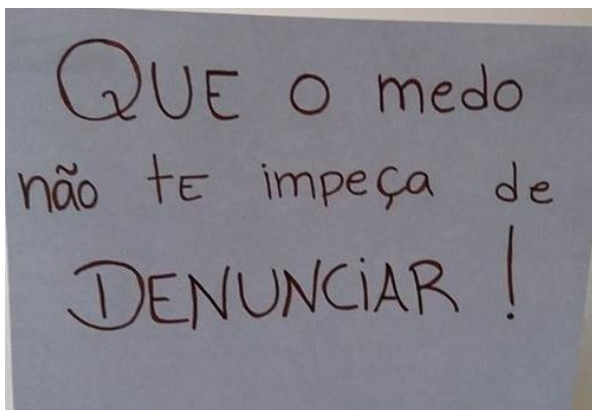 QUE o medo
não tE impeça de
DENUNCiAR!